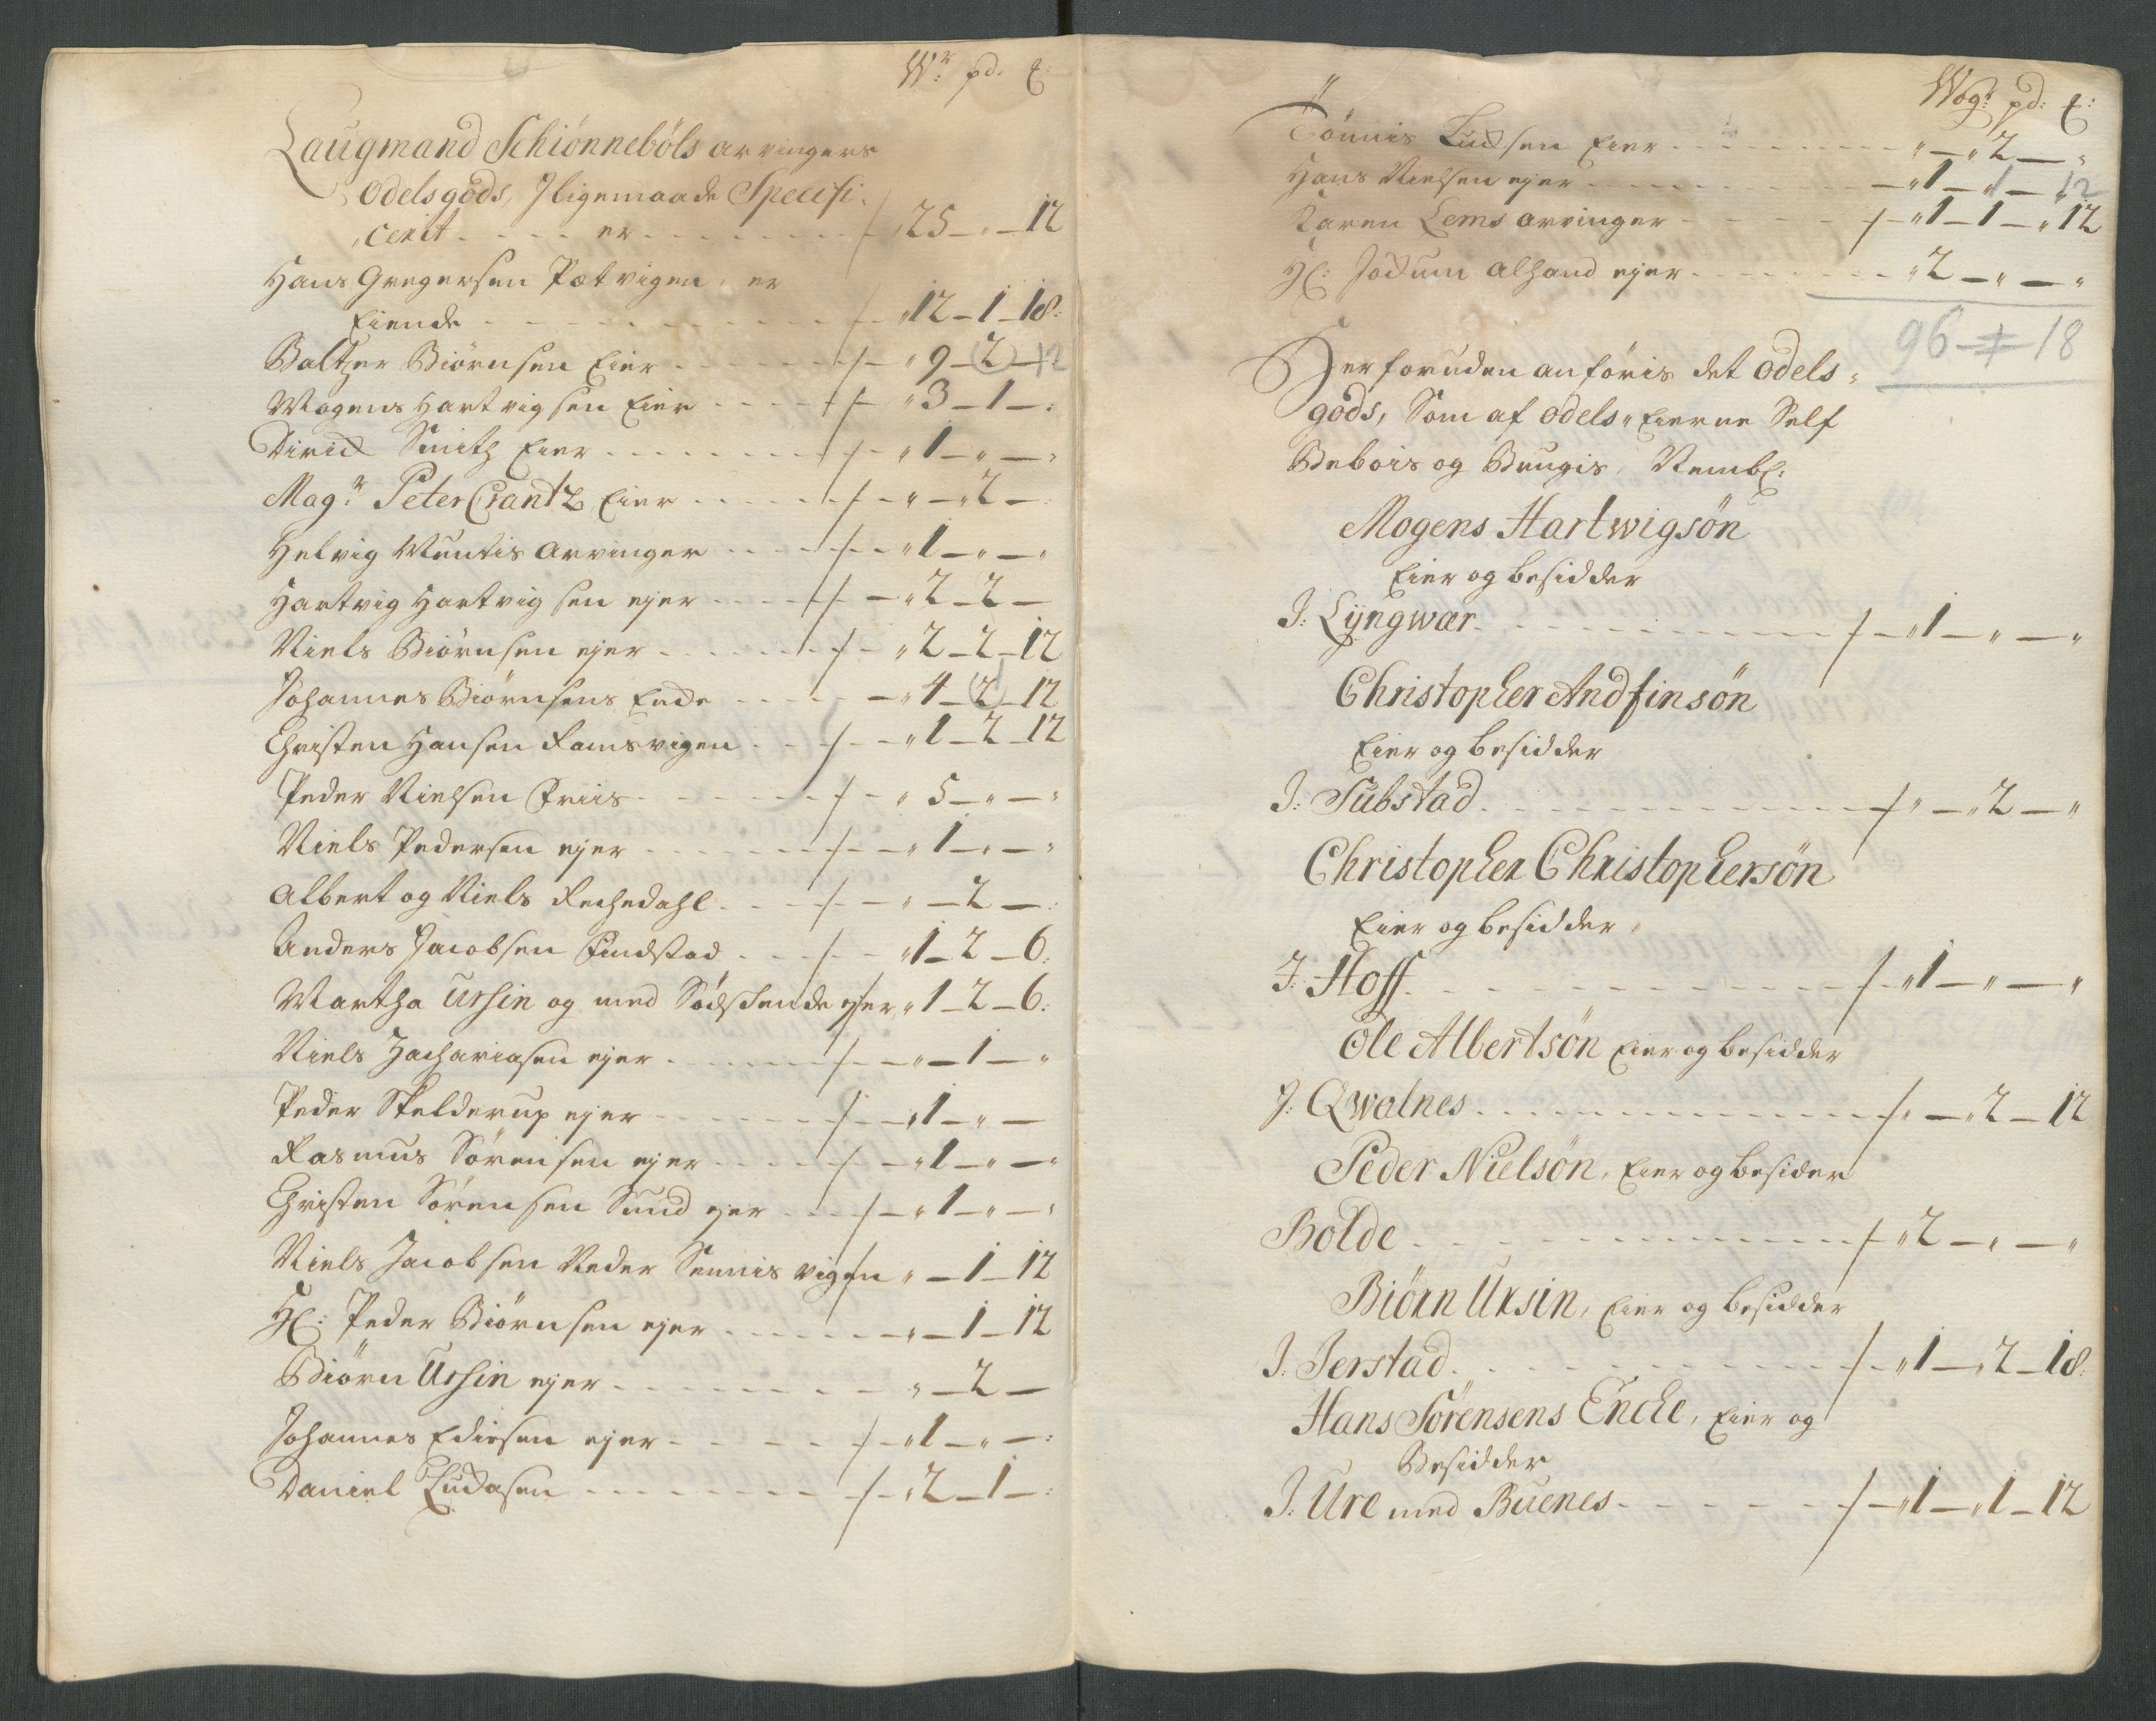 Wr: pd. ℔:
Laugmand Schiønnebøls arvingers
Odelsgods, Iligemaade Specifi-
cerit - - - - er - - - - - - / 25 - „ - 12
Hans Gregersen Pætvigen, er
Eiende - - - - - - - / - „ 12 - 1 - 18:
Baltzer Biørnsen Eier - - - - / - „ 9 - (2) - 12
Mogens Hartvigsen Eier - - - - / - „ 3 - 1 - :
Dirich Smith Eier - - - - - / - „ 1 - „ - „
Magr: Peter Crantz Eier - - - - / - „ - „ 2 - :
Helvig Muntis Arvinger - - - / - „ 1 - „ - „
Hartvig Hartvigsen ejer - - - / - „ 2 - 2 -
Niels Biørnsen ejer - - - - / - „ 2 - 2 - 12
Johannes Biørnsens Encke - - - - „ 4 - (2) - 12
Christen Hansen Ramsvigen - - / - „ 1 - 2 - 12
Peder Nielsen Friis - - - - / - „ 5 - „ - „
Niels Pedersen ejer - - - - / - „ 1 - „ - „
Albert og Niels Rechedahl - - - / - „ - 2 - :
Anders Jacobsen Findstad - - - / - „ 1 - 2 - 6:
Martha Ursin og med Sødskende ejer „ 1 - 2 - 6:
Niels Zachariasen ejer - - - - / - „ - 1 - „
Peder Skelderup ejer - - - - / - „ 1 - „ -
Rasmus Sørensen ejer - - - - / - „ 1 - „ - „
Christen Sørensen Sund ejer - - - / - „ 1 - „ - „
Niels Jacobsen Neder Sennisvigen „ - 1 - 12
Hr: Peder Biørnsen ejer - - - - - „ - 1 - 12
Biørn Ursin ejer - - - - - - „ - 2 -
Johannes Edisen ejer - - - - / - „ 1 - „ - :
Daniel Ludasen - - - - - / - „ 2 - 1 - :
Wog: pd: ℔:
Tønnis Ludsen Eier - - - - - „ - „ 2 - „
Hans Nielsen ejer - - - - - - „ 1 - „ 1 - 12
Karen Lems Arvinger - - - - / - „ 1 - 1 - „ 12
Hr: Jochum Alhand ejer - - - - „ 2 - „ - „
96 - 1 - 18
Herforuden anføris det Odels-
gods, Som af Odels Eierne Self
Bebois og Brugis, Nembl:
Mogens Hartwigsøn
Eier og besidder
I: Lyngwær - - - - - / - „ 1 - „ - „
Christopher Andfinsøn
Eier og besidder
I: Substad - - - - - / „ - „ 2 - „
Christopher Christophersøn
Eier og besidder,
I: Hoff - - - - - / - „ 1 - „ - „
Ole Albertsøn Eier og besidder
I: Qwalnes - - - - - / „ - „ 2 - 12
Peder Nielsøn, Eier og besider
Bolde - - - - - / - „ 2 - „ - „
Biørn Ursin, Eier og besidder
I: Jerstad - - - - - / - „ 1 - „ 2 - 18:
Hans Sørensens Encke, Eier og
Besidder
I: Ure med Buenes - - - - / - „ 1 - „ 1 - 12